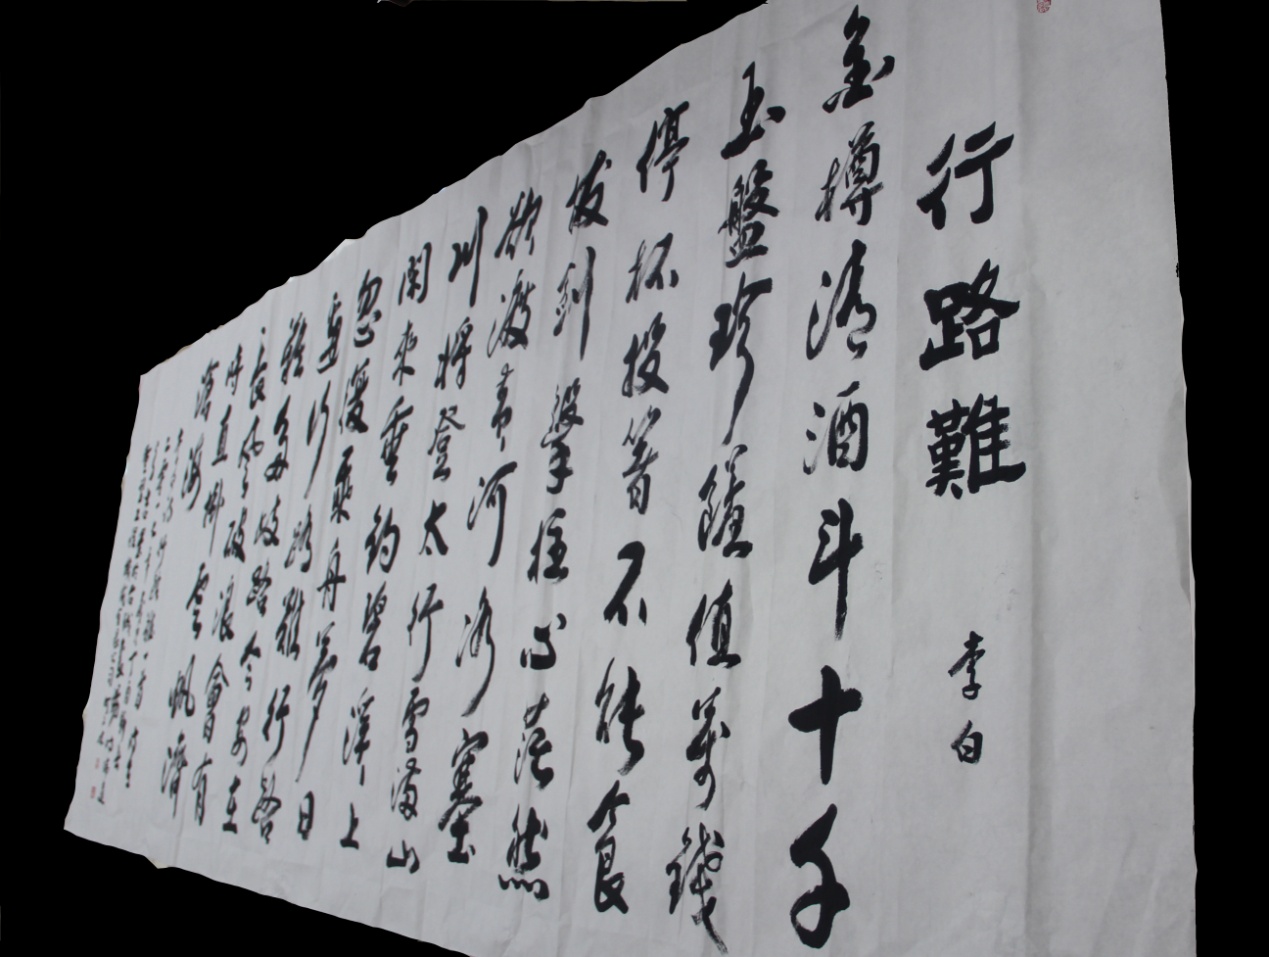 行路難 李白
金樽清酒斗十千
玉盤珍饈值萬錢
停杯投箸不能食
拔劍擊柱心茫然
欲渡黃河冰塞
川將登太行雪滿山
閑來垂釣碧溪上
忽復乘舟夢日
邊行路難行路
難多歧路今安在
長風破浪會有
時直掛雲帆濟
滄海